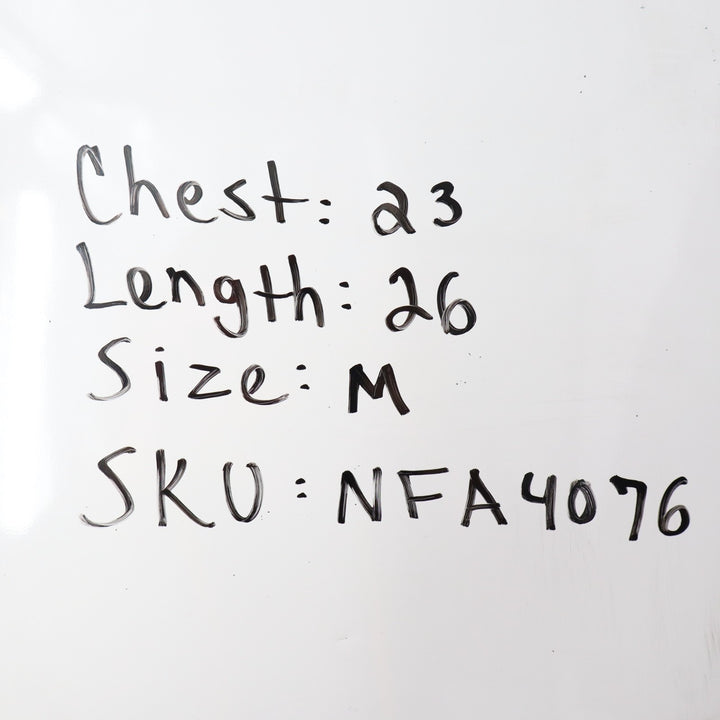 Chest: 23
Length: 26
Size: M
SKU: NFA4076